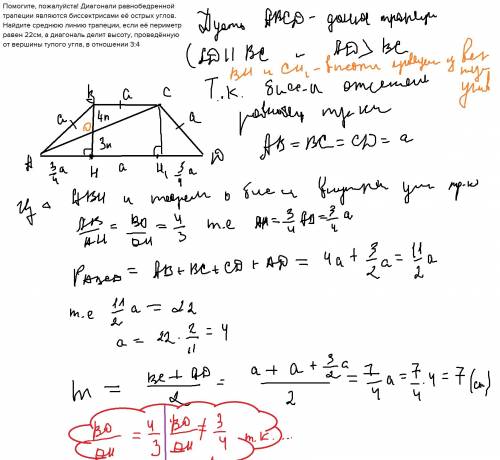 Помогите, пожалуйста! Диагонали равнобедренной
трапеции являются биссектрисами её острых углов.
Найдите среднюю линию трапеции, если её периметр
равен 22см, а диагональ делит высоту, проведённую
от вершины тупого угла, в отношении 3:4
Пусть ABCD - данная трапеция
(AD || BC и AD > BC
BH и CH₁ - высоты трапеции из вер
Т.к. бис-и отсекают
равнобед тр-ки
AB = BC = CD = a
B a C
a 4n a
O
3n
A H a H₁ D
3/4 a 3/4 a
Из △ ABH и теорем о бис-и внутр угла тр-ка
AB/AH = BO/OH = 4/3 т.е AH = 3/4 AB = 3/4 a
P ABCD = AB + BC + CD + AD = 4a + 3/2 a = 11/2 a
т.е 11/2 a = 22
a = 22 · 2/11 = 4
m = (BC + AD)/2 = (a + a + 3/2 a)/2 = 7/4 a = 7/4 · 4 = 7 (см)
BO/OH = 4/3 BO/OH ≠ 3/4 т.к. ...